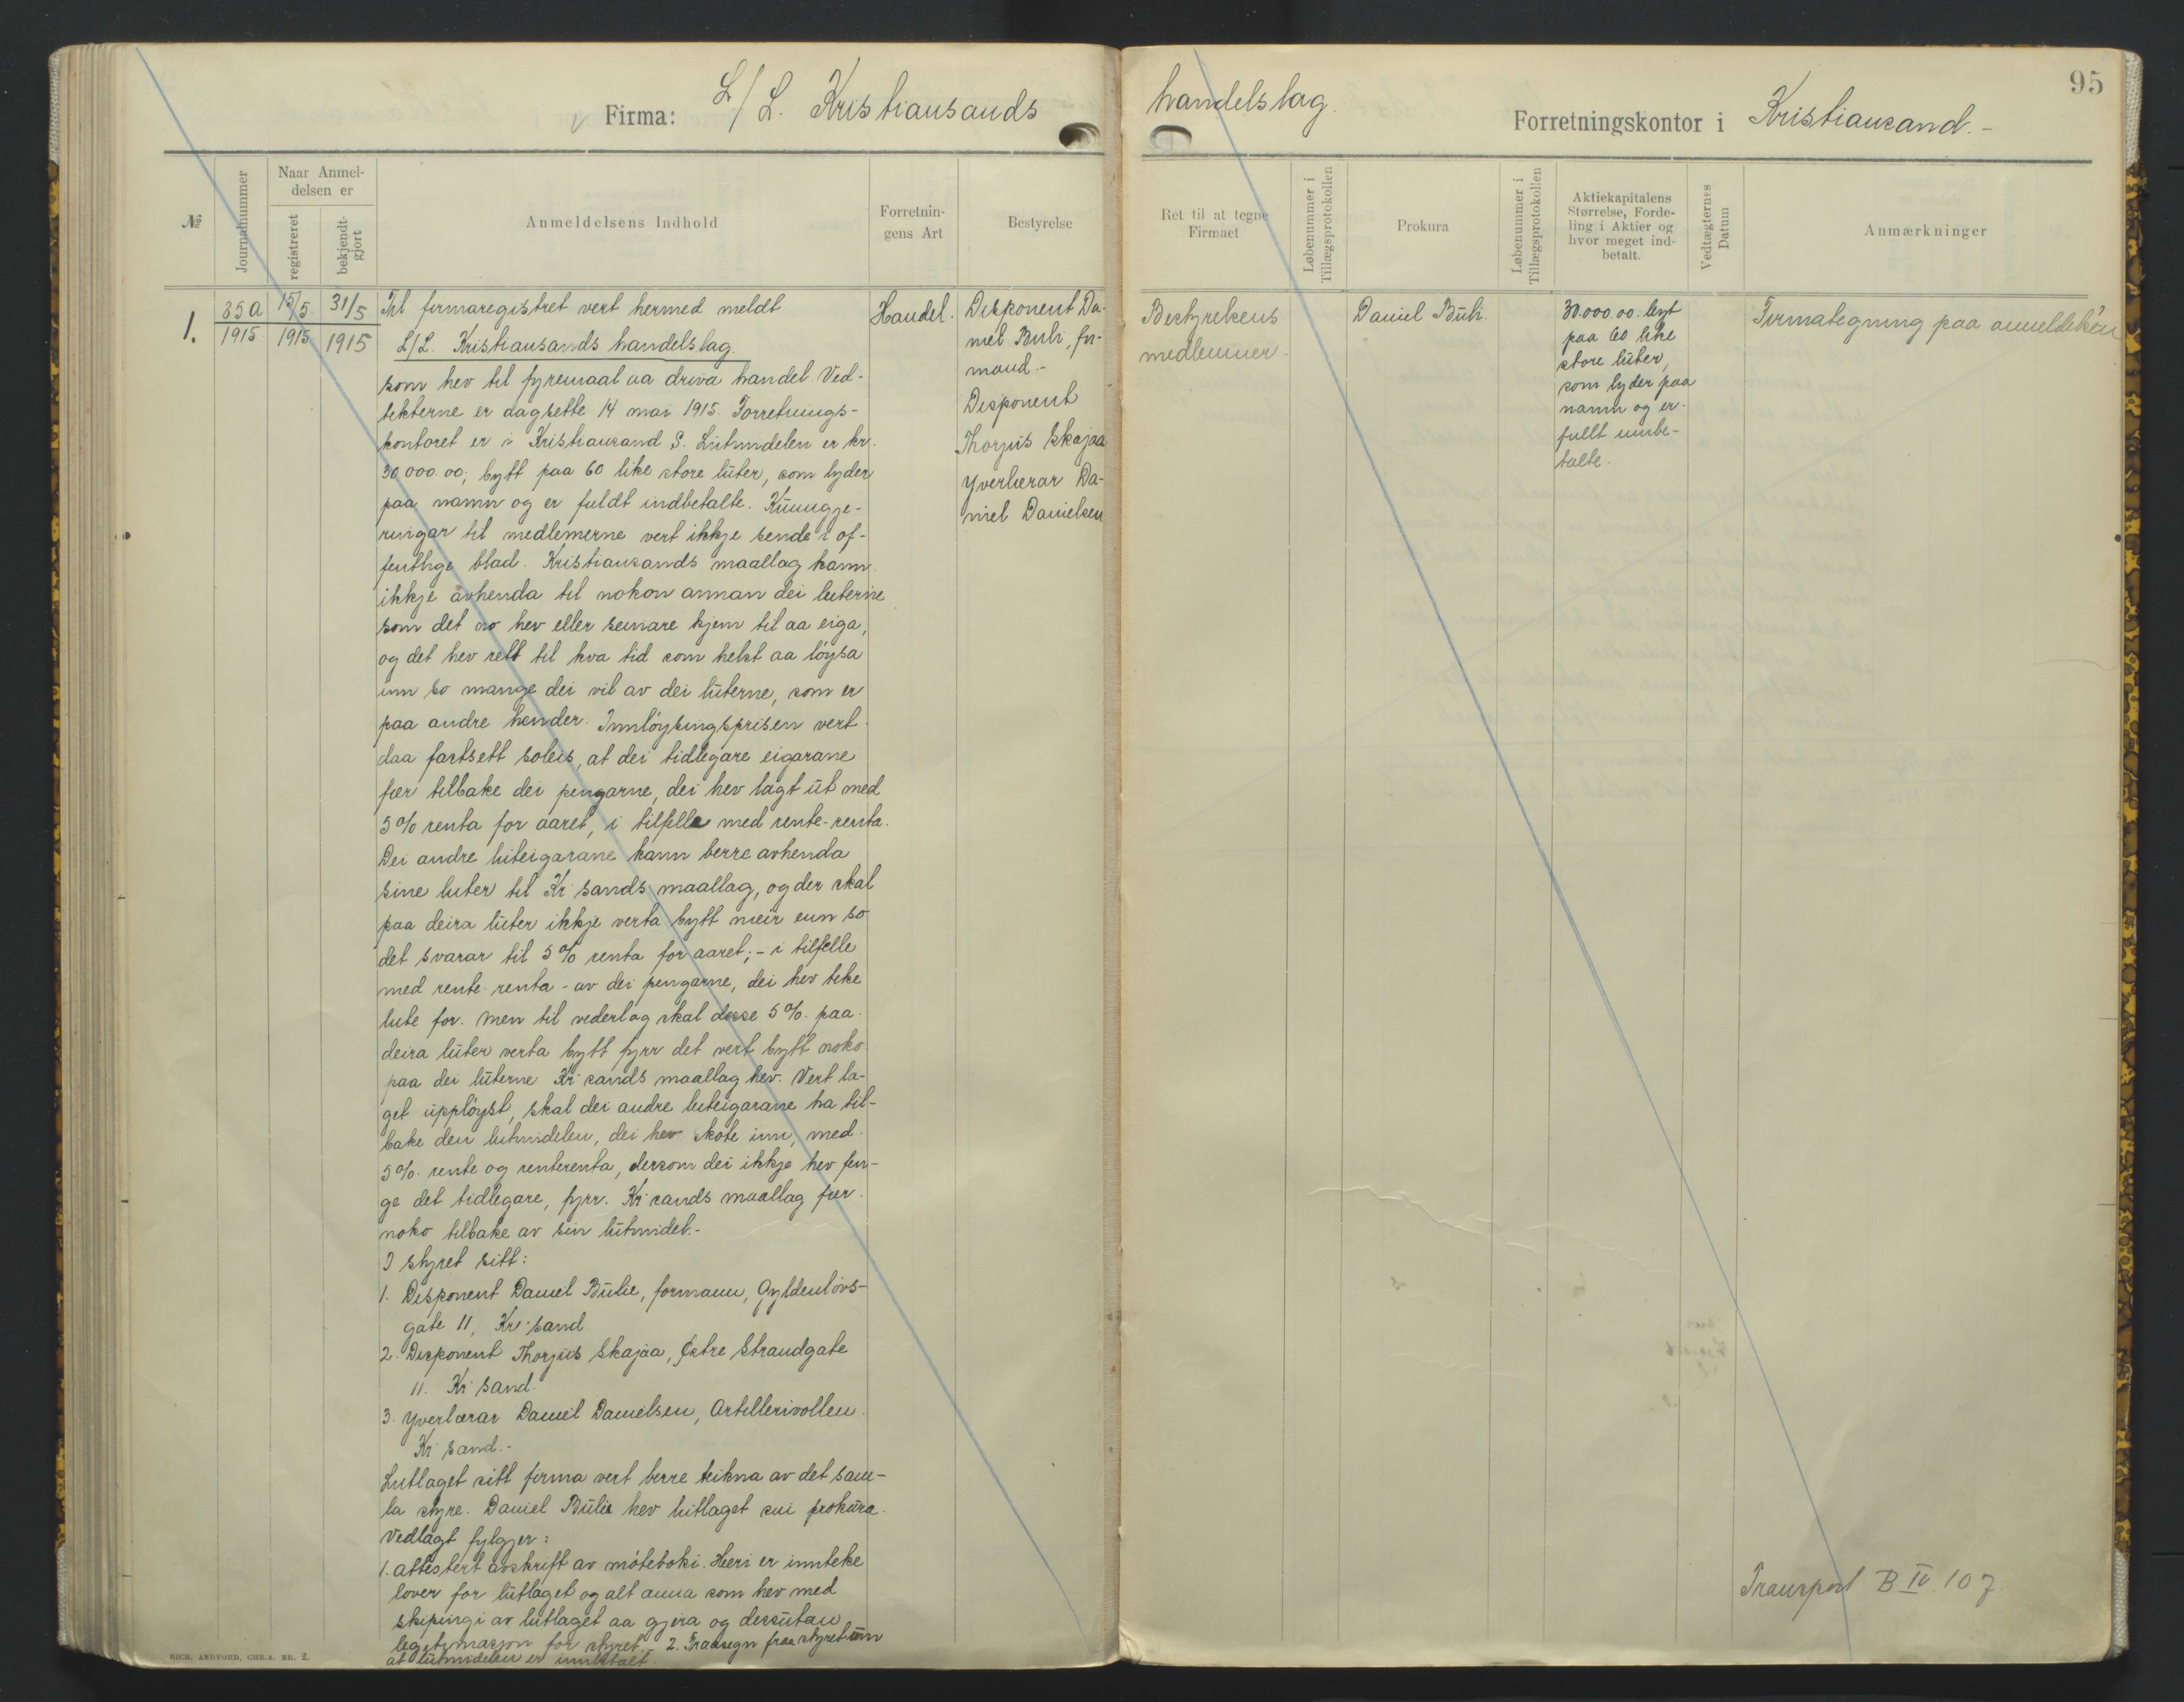 95
Firma: L/L. Kristiansands handelslag.
Forretningskontor i Kristiansand. -
№
Journalnummer
Naar Anmel-
delsen er
registreret
bekjendt-
gjort
Anmeldelsens Indhold
Forretnin-
gens Art
Bestyrelse
Ret til at tegne
Firmaet
Løbenummer i
Tillægsprotokollen
Prokura
Løbenummer i
Tillægsprotokollen
Aktiekapitalens
Størrelse, Forde-
ling i Aktier og
hvor meget ind-
betalt.
Vedtægternes
Datum
Anmærkninger
1.
85a
1915
15/5
1915
31/5
1915
Til firmaregistret vert hermed meldt
L/L. Kristiansands handelslag.
som hev til fyremaal aa driva handel. Ved-
tekterne er dagsette 14 mai 1915. Forretnings-
kontoret er i Kristiansand S. Lutmidelen er kr.
30,000.00, bytt paa 60 like store luter, som lyder
paa namn og er fuldt indbetalte. Kunngje-
ringar til medlemerne vert ikkje sende i of-
fentlige blad. Kristiansands maallag kann
ikkje avhenda til nokon annan dei luterne
som det no hev eller seinare kjem til aa eiga,
og det hev rett til kva tid som helst aa löysa
inn so mange dei vil av dei luterne, som er
paa andre hender. Innlöysingsprisen vert
daa fastsett soleis, at dei tidlegare eigarane
fær tilbake dei pengarne, dei hev lagt ut med
5% renta for aaret, i tilfelle med rente-renta.
Dei andre luteigarane kann berre avhenda
sine luter til Kr sands maallag, og der skal
paa deira luter ikkje verta bytt meir enn so
det svarar til 5% renta for aaret; - i tilfelle
med rente-renta - av dei pengarne, dei hev teke
lute for. Men til vederlag skal desse 5%. paa
deira luter verta bytt fyrr det vert bytt noko
paa dei luterne Kr sands maallag hev. Vert la-
get uppløyst, skal dei andre luteigarane ha til-
bake den lutmidelen, dei hev skote inn, med
5%. rente og renterenta, dersom dei ikkje hev fen-
ge det tidlegare, fyrr. Kr sands maallag fær
noko tilbake av sin lutmidel.-
I styret sitt:
1. Disponent Daniel Bulie, formann, Gyldenlövs-
gate 11, Kr sand
2. Disponent Thorjus Skajaa, Østre Strandgate
11. Kr sand.
3. Yverlærar Daniel Danielsen, Artillerivollen.
Kr sand.-
Lutlaget sitt firma vert berre teikna av det sam-
la styre. Daniel Bulie hev lutlaget sui prokura.
Vedlagt fylgjer:
1. Attestert avskrift av möteboki. Heri er innteke
lover for lutlaget og alt anna som hev med
skipingi av lutlaget aa gjera og dessutan
legitimasjon for styret.- 2. Fraasegn fraa styret um
at lutmidelen er innbetalt.
Handel.
Disponent Da-
niel Buli, for-
mand.-
Disponent
Thorjus Skajaa
Yverlærar Da-
niel Danielsen
Bestyrelsens
medlemmer.
Daniel Buli.
30.000.00. bytt
paa 60 like
store luter,
som lyder paa
namn og er
fullt innbe-
talte.
Firmategning paa anmeldelsen
Transport B IV. 107.
RICH. ANDVORD, CHR.A. NR. 2.